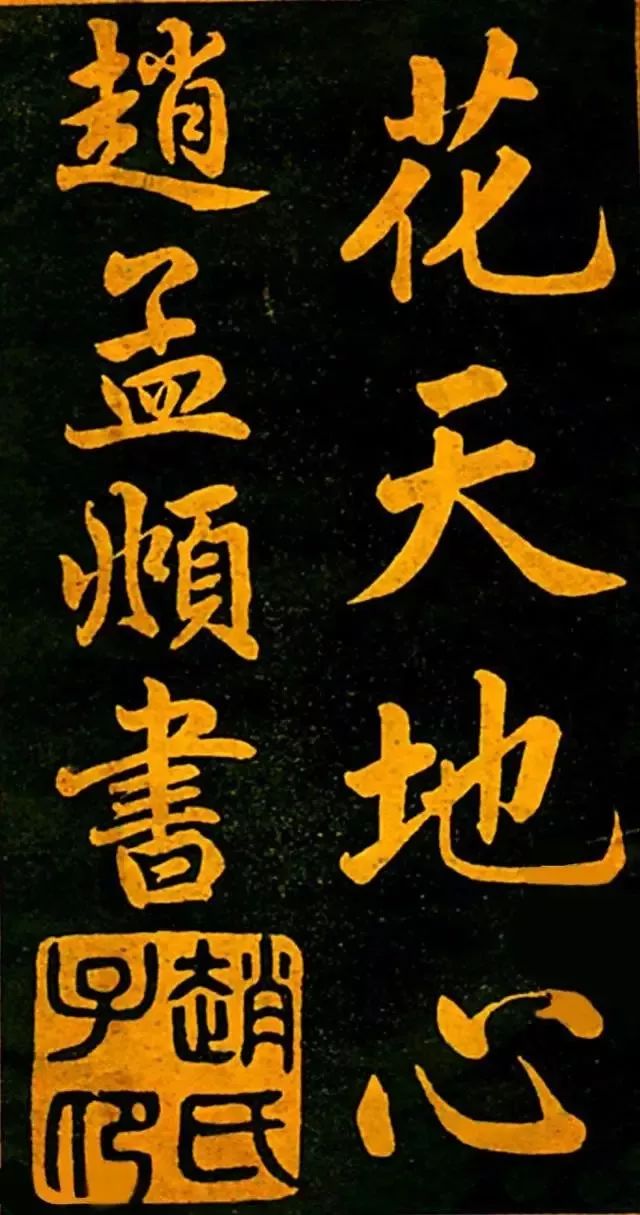 花天地心
趙孟頫書
趙氏子印